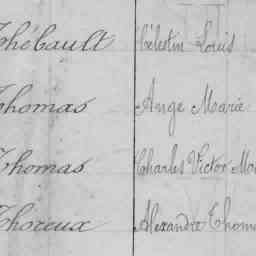 Thébault Célestin Louis
Thomas Ange Marie
Thomas Charles Victor
Thoreux Alexandre